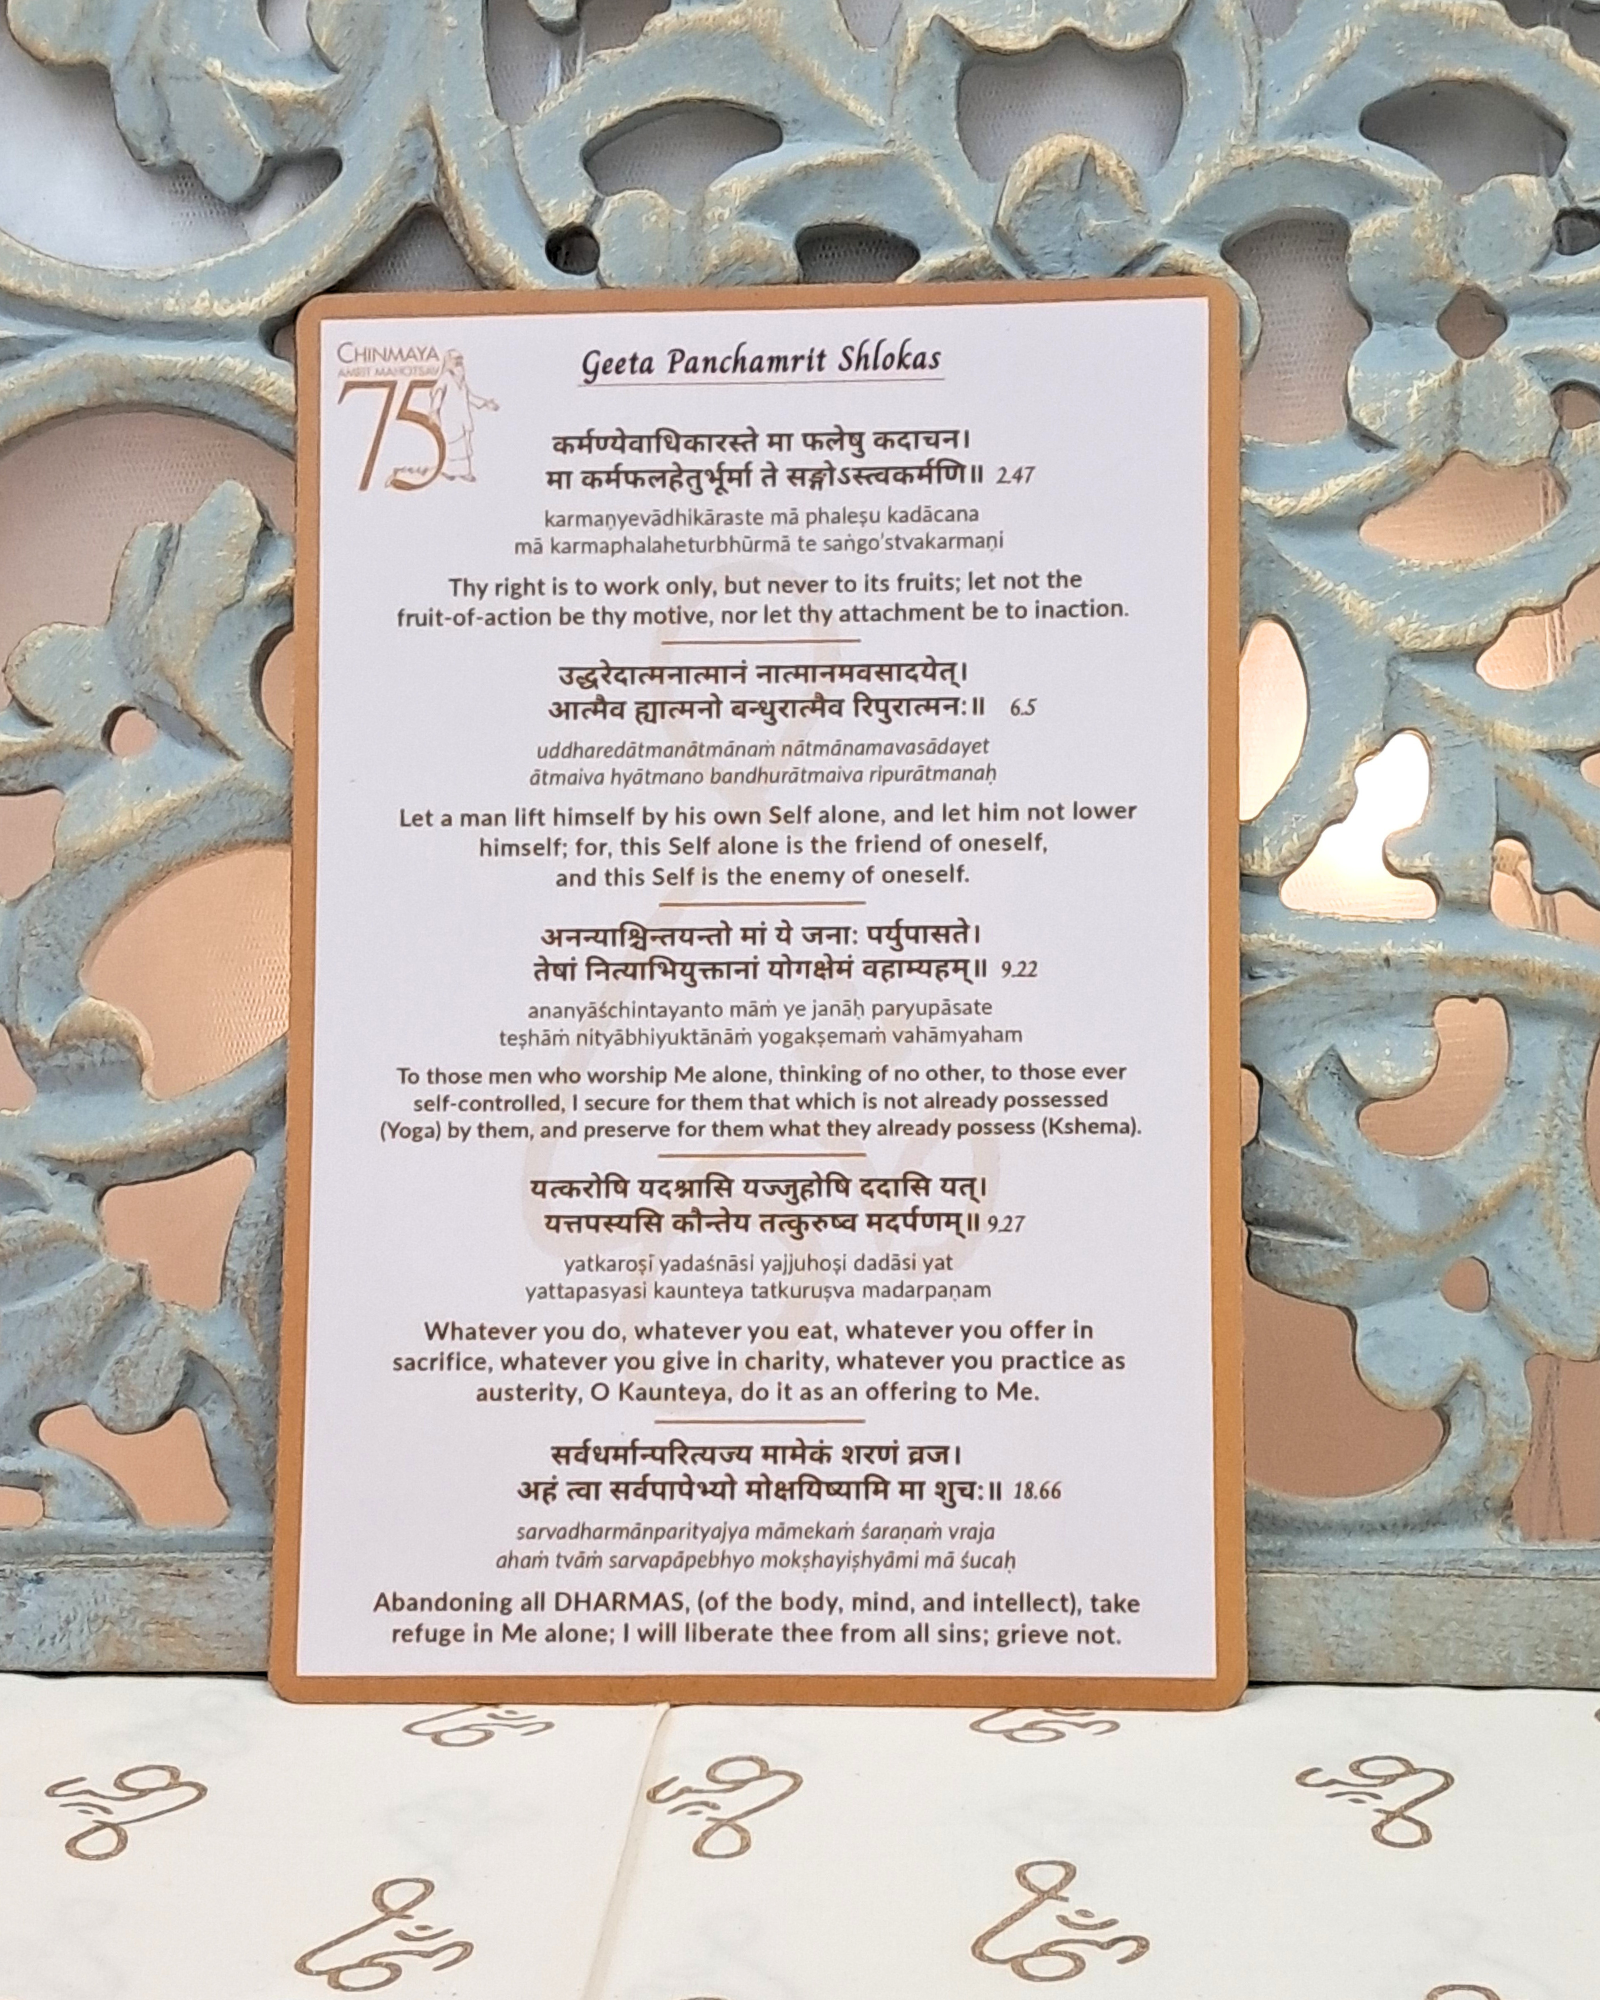 CHINMAYA
AMRIT MAHOTSAV
75
years
Geeta Panchamrit Shlokas
कर्मण्येवाधिकारस्ते मा फलेषु कदाचन।
मा कर्मफलहेतुर्भूर्मा ते सङ्गोऽस्त्वकर्मणि॥ 2.47
karmaṇyevādhikāraste mā phaleṣu kadācana
mā karmaphalaheturbhūrmā te saṅgo'stvakarmaṇi
Thy right is to work only, but never to its fruits; let not the
fruit-of-action be thy motive, nor let thy attachment be to inaction.
उद्धरेदात्मनात्मानं नात्मानमवसादयेत्।
आत्मैव ह्यात्मनो बन्धुरात्मैव रिपुरात्मनः॥ 6.5
uddharedātmanātmānaṁ nātmānamavasādayet
ātmaiva hyātmano bandhurātmaiva ripurātmanaḥ
Let a man lift himself by his own Self alone, and let him not lower
himself; for, this Self alone is the friend of oneself,
and this Self is the enemy of oneself.
अनन्याश्चिन्तयन्तो मां ये जनाः पर्युपासते।
तेषां नित्याभियुक्तानां योगक्षेमं वहाम्यहम्॥ 9.22
ananyāśchintayanto māṁ ye janāḥ paryupāsate
teṣhāṁ nityābhiyuktānāṁ yogakṣemaṁ vahāmyaham
To those men who worship Me alone, thinking of no other, to those ever
self-controlled, I secure for them that which is not already possessed
(Yoga) by them, and preserve for them what they already possess (Kshema).
यत्करोषि यदश्नासि यज्जुहोषि ददासि यत्।
यत्तपस्यसि कौन्तेय तत्कुरुष्व मदर्पणम्॥ 9.27
yatkaroṣi yadaśnāsi yajjuhoṣi dadāsi yat
yattapasyasi kaunteya tatkuruṣva madarpaṇam
Whatever you do, whatever you eat, whatever you offer in
sacrifice, whatever you give in charity, whatever you practice as
austerity, O Kaunteya, do it as an offering to Me.
सर्वधर्मान्परित्यज्य मामेकं शरणं व्रज।
अहं त्वा सर्वपापेभ्यो मोक्षयिष्यामि मा शुचः॥ 18.66
sarvadharmānparityajya māmekaṁ śaraṇaṁ vraja
ahaṁ tvāṁ sarvapāpebhyo mokṣhayiṣhyāmi mā śucaḥ
Abandoning all DHARMAS, (of the body, mind, and intellect), take
refuge in Me alone; I will liberate thee from all sins; grieve not.